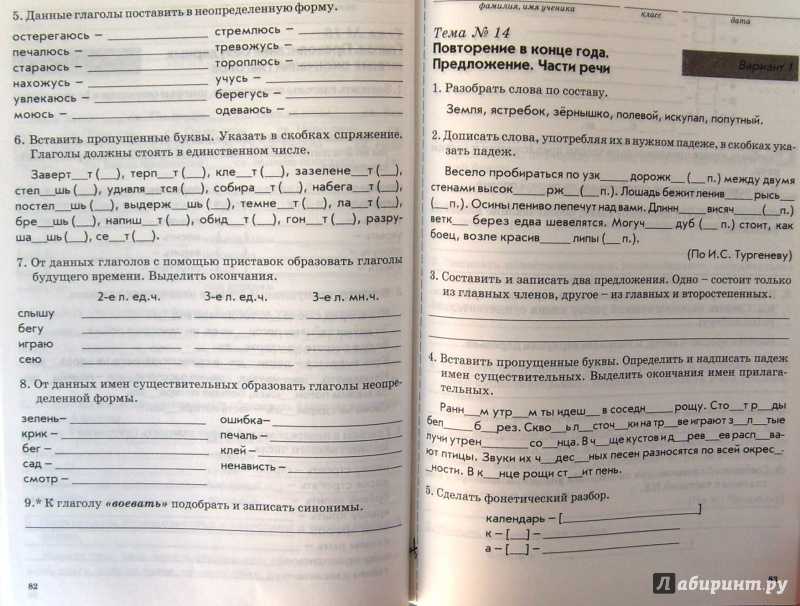 5. Данные глаголы поставить в неопределенную форму.
остерегаюсь – ____ стремлюсь – ____
печалюсь – ____ тревожусь – ____
стараюсь – ____ тороплюсь – ____
нахожусь – ____ учусь – ____
увлекаюсь – ____ берегусь – ____
моюсь – ____ одеваюсь – ____
6. Вставить пропущенные буквы. Указать в скобках спряжение.
Глаголы должны стоять в единственном числе.
Заверт__т (__), терп__т (__), кле__т (__), зазелене__т (__),
стел__шь (__), удивля__тся (__), собира__т (__), набега__т (__),
постел__шь (__), выдерж__шь (__), темне__т (__), ла__т (__),
бре__шь (__), напиш__т (__), обид__т (__), гон__т (__), разру-
ша__шь (__), се__т (__).
7. От данных глаголов с помощью приставок образовать глаголы
будущего времени. Выделить окончания.
2-е л. ед.ч. 3-е л. ед.ч. 3-е л. мн.ч.
слышу
бегу
играю
сею
8. От данных имен существительных образовать глаголы неопре-
деленной формы.
зелень– ____ ошибка– ____
крик – ____ печаль – ____
бег – ____ клей – ____
сад – ____ ненависть – ____
смотр – ____
9.* К глаголу «воевать» подобрать и записать синонимы.
82
фамилия, имя ученика класс дата
Тема № 14
Повторение в конце года.
Предложение. Части речи
Вариант 1
1. Разобрать слова по составу.
Земля, ястребок, зёрнышко, полевой, искупал, попутный.
2. Дописать слова, употребляя их в нужном падеже, в скобках ука-
зать падеж.
Весело пробираться по узк____ дорожк__ (__ п.) между двумя
стенами высок____ рж__ (__ п.). Лошадь бежит ленив____ рысь__
(__ п.). Осины лениво лепечут над вами. Длинн____ висяч____ (__ п.)
ветк__ берез едва шевелятся. Могуч____ дуб (__ п.) стоит, как
боец, возле красив____ липы (__ п.).
(По И.С. Тургеневу)
3. Составить и записать два предложения. Одно – состоит только
из главных членов, другое – из главных и второстепенных.
4. Вставить пропущенные буквы. Определить и надписать падеж
имен существительных. Выделить окончания имен прилага-
тельных.
Ранн__м утр__м ты идеш__ в соседн____ рощу. Сто__т р__ды
бел____ б__рез. Скво__ь л__сточ__ки на тр__ве играют з__л__тые
лучи утрен____ со__нца. В ч__ще кустов и д__рев__ев расп__ва-
ют птицы. Звуки их ч__дес__ных песен разносятся по всей окрес__-
ности. В к__нце рощи ст__ит пень.
5. Сделать фонетический разбор.
календарь – [____]
к – [__] – ____
а – [__] – ____
83
Лабиринт.ру